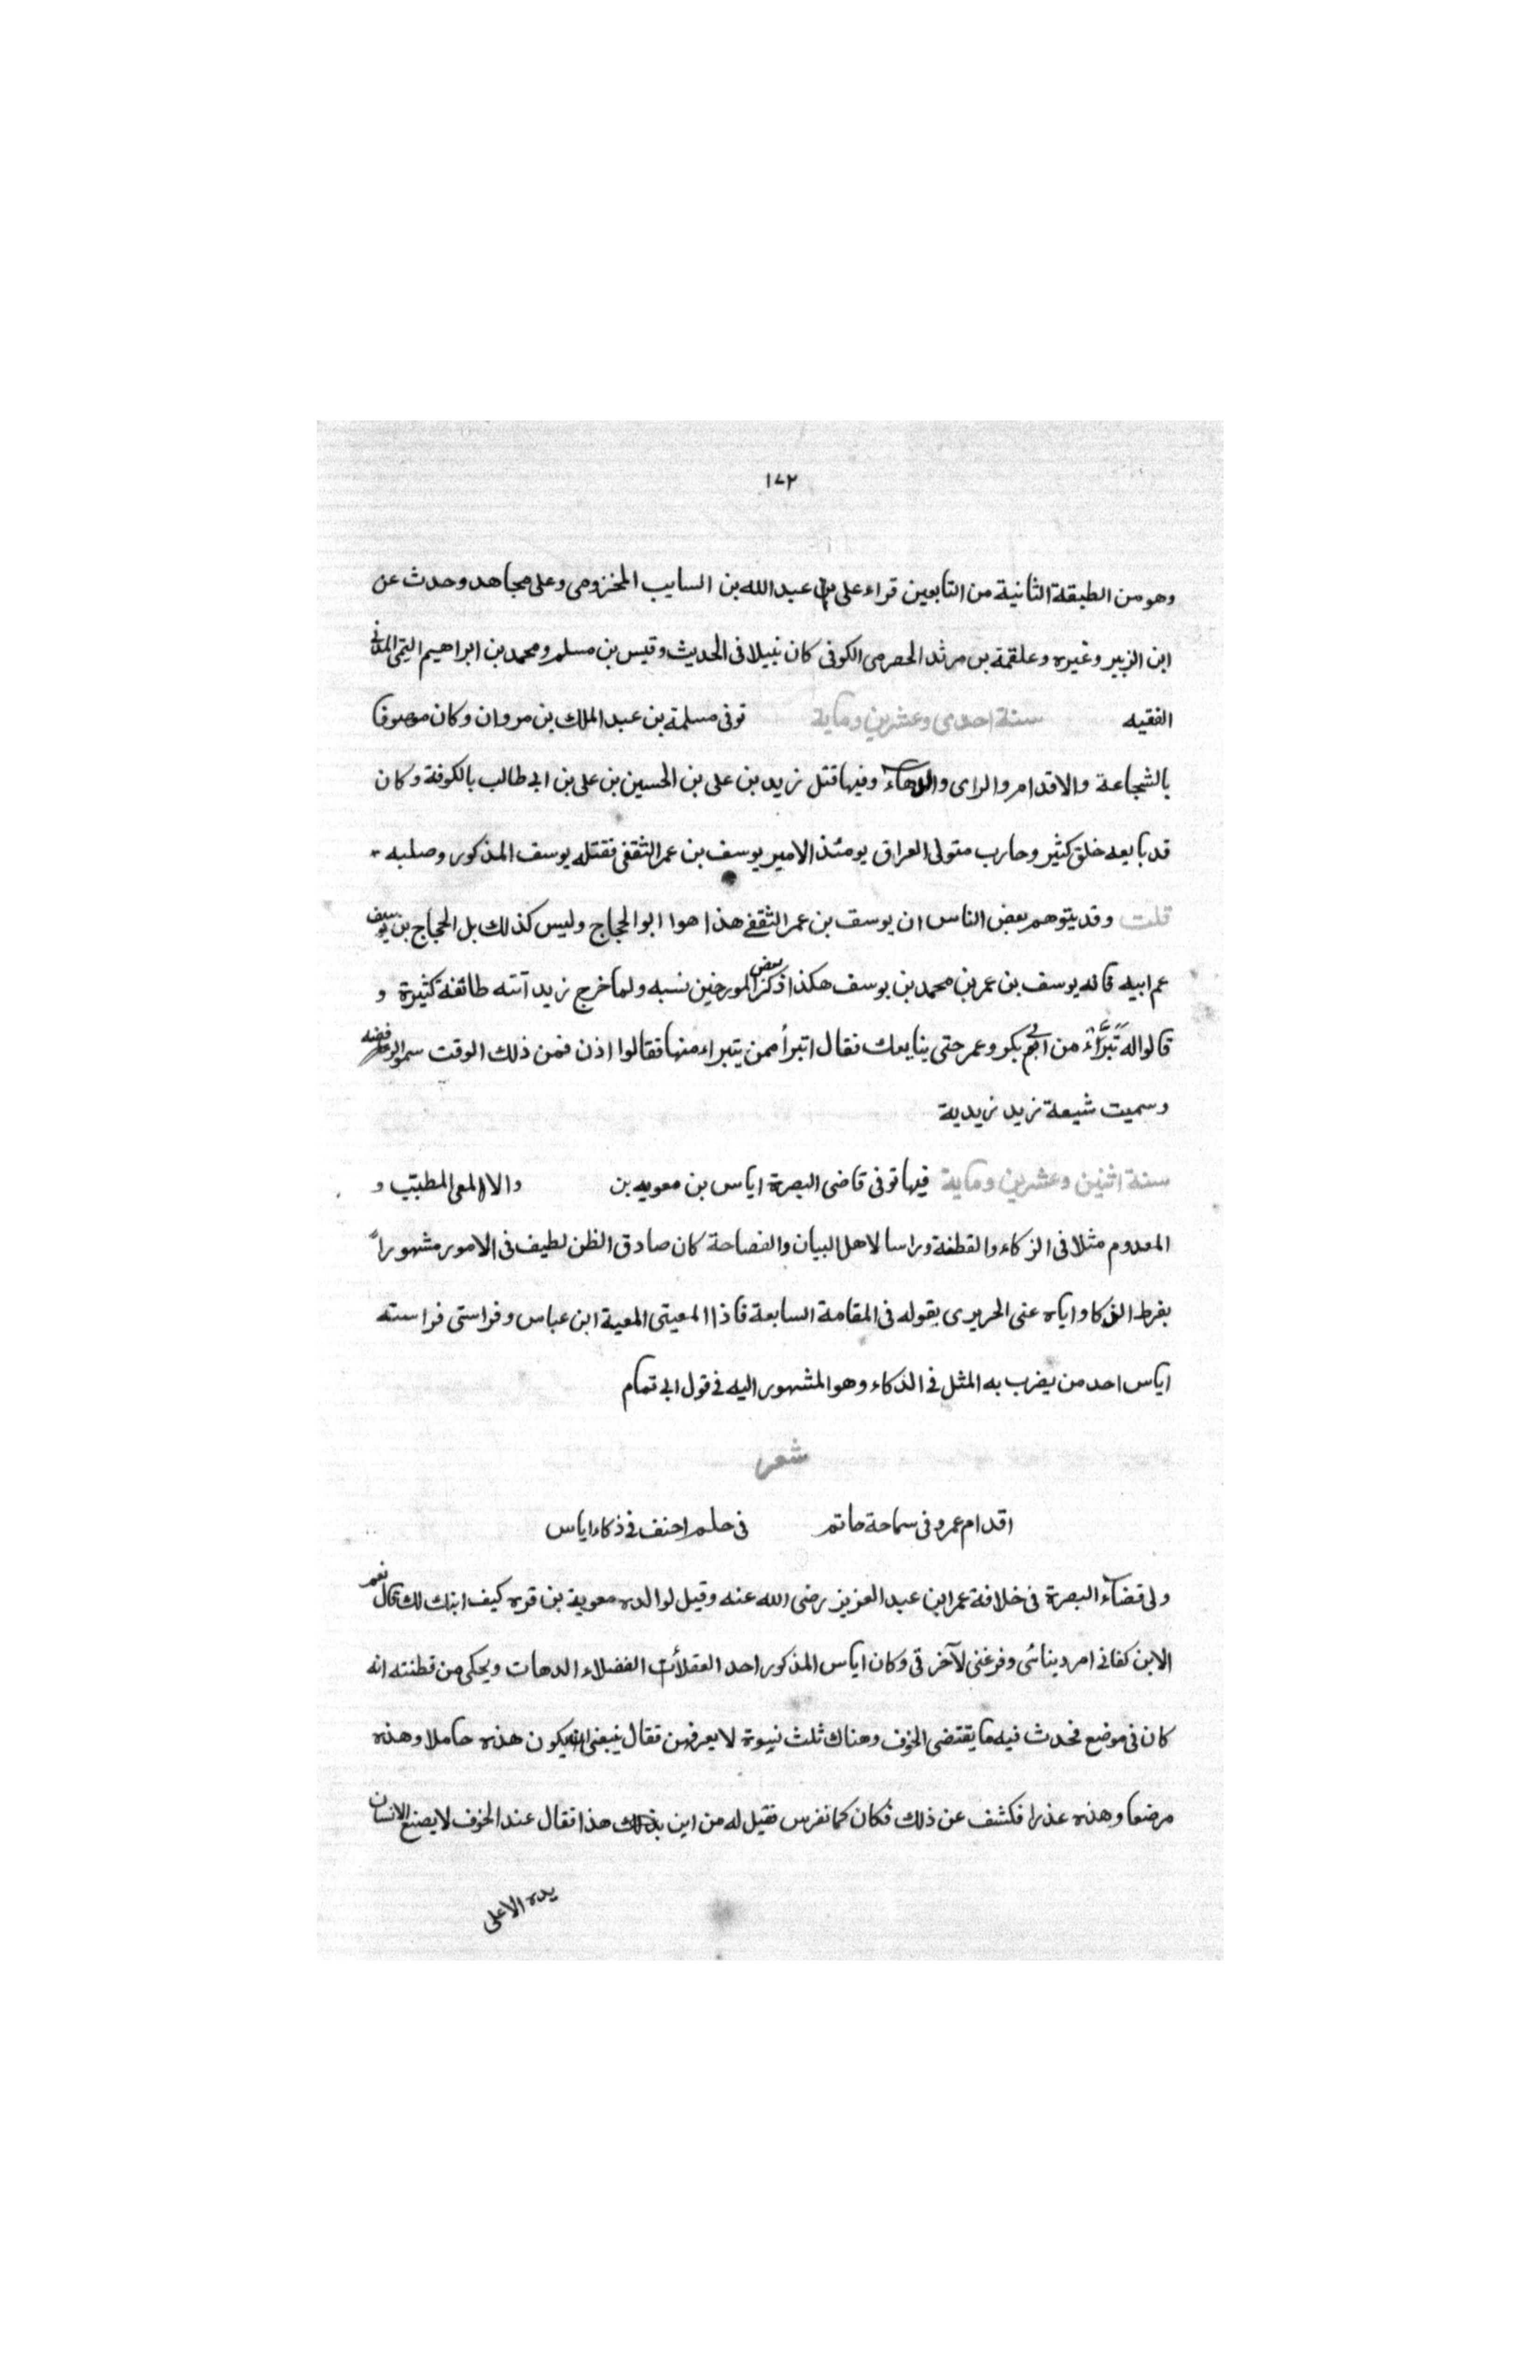 ١٧٢
وهو من الطبقة الثانية من التابعين قراء على عبد الله بن السايب المخزومى وعلى مجاهد وحدث عن
ابن الزبير وغيره وعلقمة بن مرثد الحصرمى الكوفى كان نبيلا فى الحديث وقيس بن مسلم ومحمد بن ابراهيم التيمى المدنى
الفقيه سنة احدى وعشرين وماية توفى مسلمة بن عبد الملك بن مروان وكان موصوفا
بالشجاعة والاقدام والراى والدهاء وفيها قتل زيد بن على بن الحسين بن على بن ابى طالب بالكوفة وكان
قد بايعه خلق كثير وحارب متولى العراق يومئذ الامير يوسف بن عمر الثقفى فقتله يوسف المذكور وصلبه
قلت وقد يتوهم بعض الناس ان يوسف بن عمر الثقفى هذا هوا ابو الحجاج وليس كذلك بل الحجاج بن يوسف
عم ابيه فانه يوسف بن عمر بن محمد بن يوسف هكذا ذكر بعض المورخين نسبه ولما خرج زيد آتته طائفة كثيرة و
قالوا له تبَرَّاء من ابى بكر وعمر حتى ينايعك فقال اتبرأ ممن يتبراء منها فقالوا اذن فمن ذلك الوقت سموا الرافضه
وسميت شيعة زيد زيدية
سنة اثنين وعشرين وماية فيها توفى قاضى البصرة اياس بن معويه بن والالمعى المطبتب و
المعدوم مثلا فى الزكاء والقطفة وراسا لاهل البيان والفصاحة كان صادق الظن لطيف فى الامور مشهوراً
بفرط الذكا واياه عنى الحريرى بقوله فى المقامة السابعة فاذا المعيتى المعية ابن عباس وفراستى فراسته
اياس احد من يضرب به المثل فى الذكاء وهو المشهور اليه فى قول ابى تمام
شعر
اقدام عمرو فى سماحة حاتم فى حلم احنف فى ذكاء اياس
ولى قضاء البصرة فى خلافة عمر ابن عبد العزيز رضى الله عنه وقيل لوالده معوية بن قره كيف ابنك لك قال نعم
الابن كفانى امر ديناى وفرغنى لآخرتى وكان اياس المذكور احد العقلاء الفضلاء الدهات ويحكى من قطنته انه
كان فى موضع فحدث فيه ما يقتضى الخوف وهناك ثلث نسوة لا يعرفهن فقال ينبغى ان يكون هذه حاملا وهذه
مرضعا وهذه عذرا فكشف عن ذلك فكان كما تفرس فقيل له من اين بذلك هذا فقال عند الخوف لا يصنع الانسان
يده الاعلى